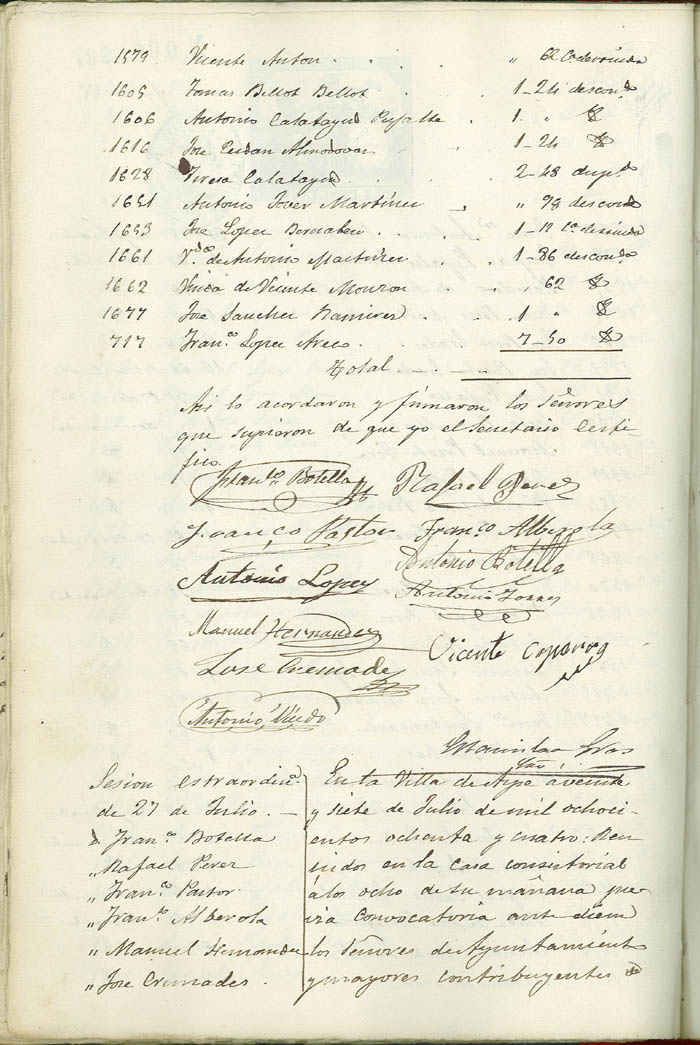 1579 Vicente Anton . . . " 62 Cs derruida
1605 Tomas Bellot Bellot . . 1-24 descondo
1606 Antonio Calatayud Pujalte . 1. "
1616 Jose Cerdan Almodovar 1-24
1628 Teresa Calatayud . . . 2-48 dupdo
1651 Antonio Jover Martinez " 98 descondo
1653 Jose Lopez Bernabeu . . 1-12 Ca derruida
1661 Vda de Antonio Martinez . 1-86 descondo
1662 Viuda de Vicente Monzon . , 62
1677 Jose Sanchez Ramirez . . 1 "
717 Franco Lopez . . . 7-50
Total . . . .
Asi lo acordaron y firmaron los Señores
que supieron de que yo el Secretario certi
fico.
Franco Botella Rafael Perez
Franco Pastor Franco Alberola
Antonio Lopez Antonio Botella
Antonio Torres
Manuel Hernandez
Vicente
Jose Cremades
Antonio
Estanislao Gras
Srio
Sesion estraordina
de 27 de Julio. —
D Franco Botella
" Rafael Perez
" Franco Pastor.
" Franco Alberola
" Manuel Hernandez
" Jose Cremades.
En la Villa de Aspe á veinte
y siete de Julio de mil ochoci
entos ochenta y cuatro: Reu
nidos en la casa consistorial
á las ocho de su mañana pre
via convocatoria ante diem
los Señores de Ayuntamiento
y mayores contribuyentes